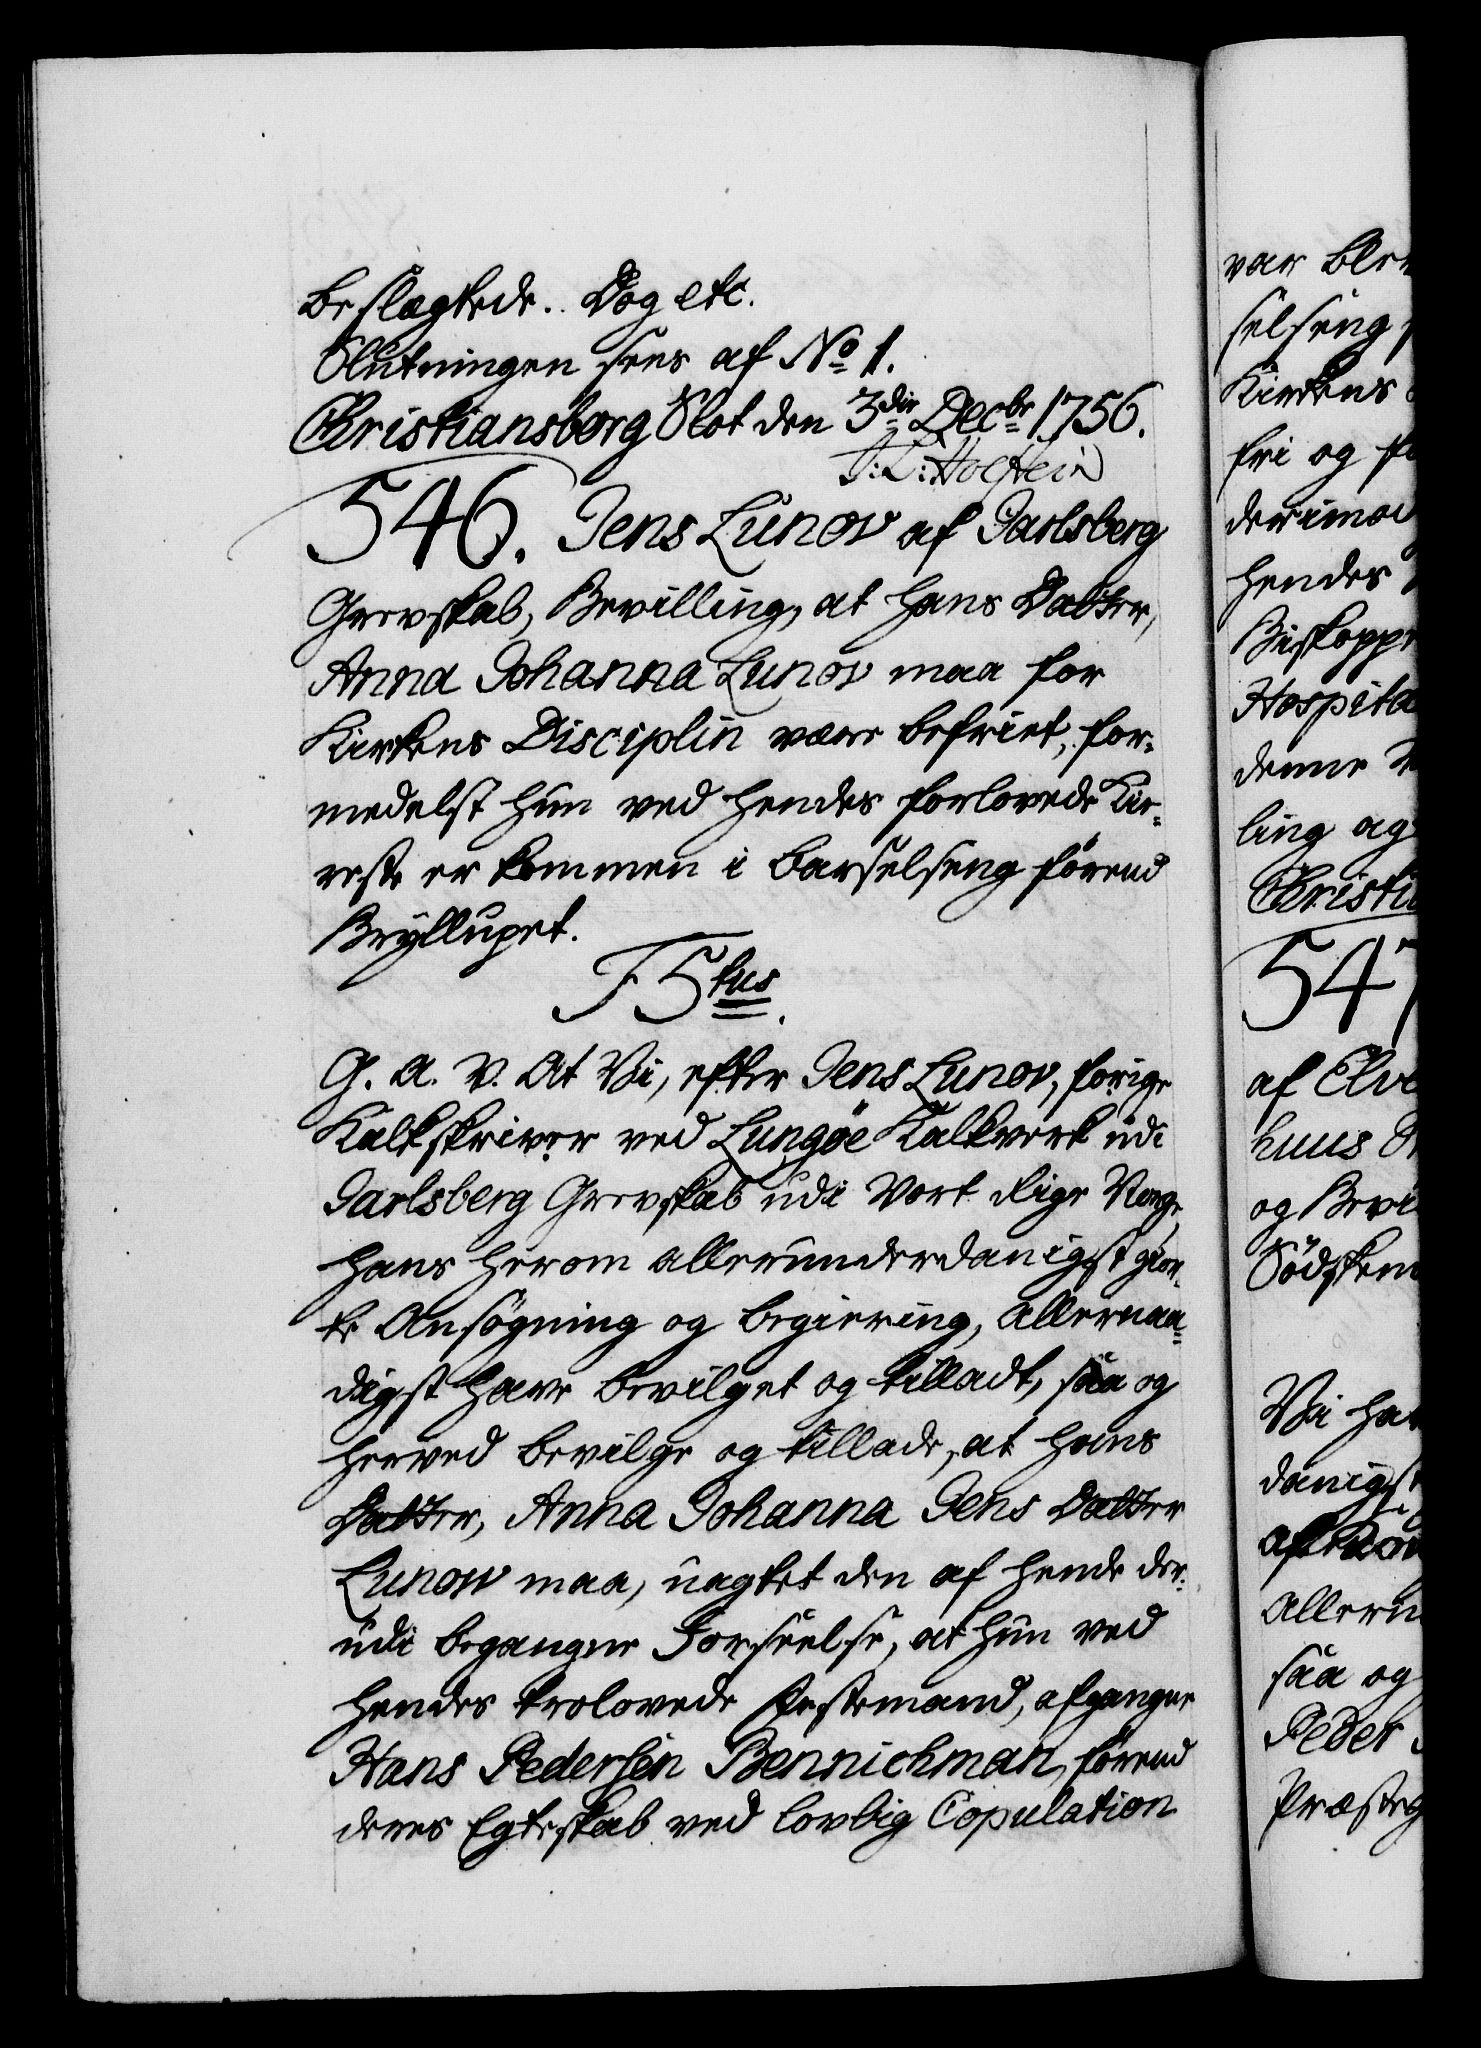 beslægtede. Dog etc.
Slutningen sees af No 1.
Christiansborg Slot den 3die Decbr 1756.
J: L: Holstein
546. Jens Lunov af Jarlsberg
Grevskab, Bevilling, at hans Datter,
Anna Johanna Lunov maa for
Kirkens Disciplin være befriet, for-
medelst hun ved hendes forlovede Kie-
reste er kommen i Barselseng førend
Brÿllupet.
F 5tus.
G. A. V. At Vi, efter Jens Lunov, forige
Kalkskriver ved Lungøe Kalkverk udi
Jarlsberg Grevskab udi Vort Rige Norge,
hans herom allerunderdanigst gior-
te Ansøgning og begiering, allernaa-
digst have bevilget og tilladt, saa og
herved bevilge og tillade, at hans
Datter, Anna Johanna Jens Datter
Lunow maa, uagtet den af hende der-
udi begangne Forseelse, at hun ved
hendes trolovede Festemand, afgangne
Hans Pedersen Bennichman, førend
deres Egteskab ved lovlig Copulation
var ble
selseng
Kirkens
fri og
derimo
hendes
Biskopp
Hospita
denne
ling ag
Christi
547
af Elve
huus
og Bevi
Södsken
Vi ha
danigst
af
alleru
saa og
Peder
Præsteg